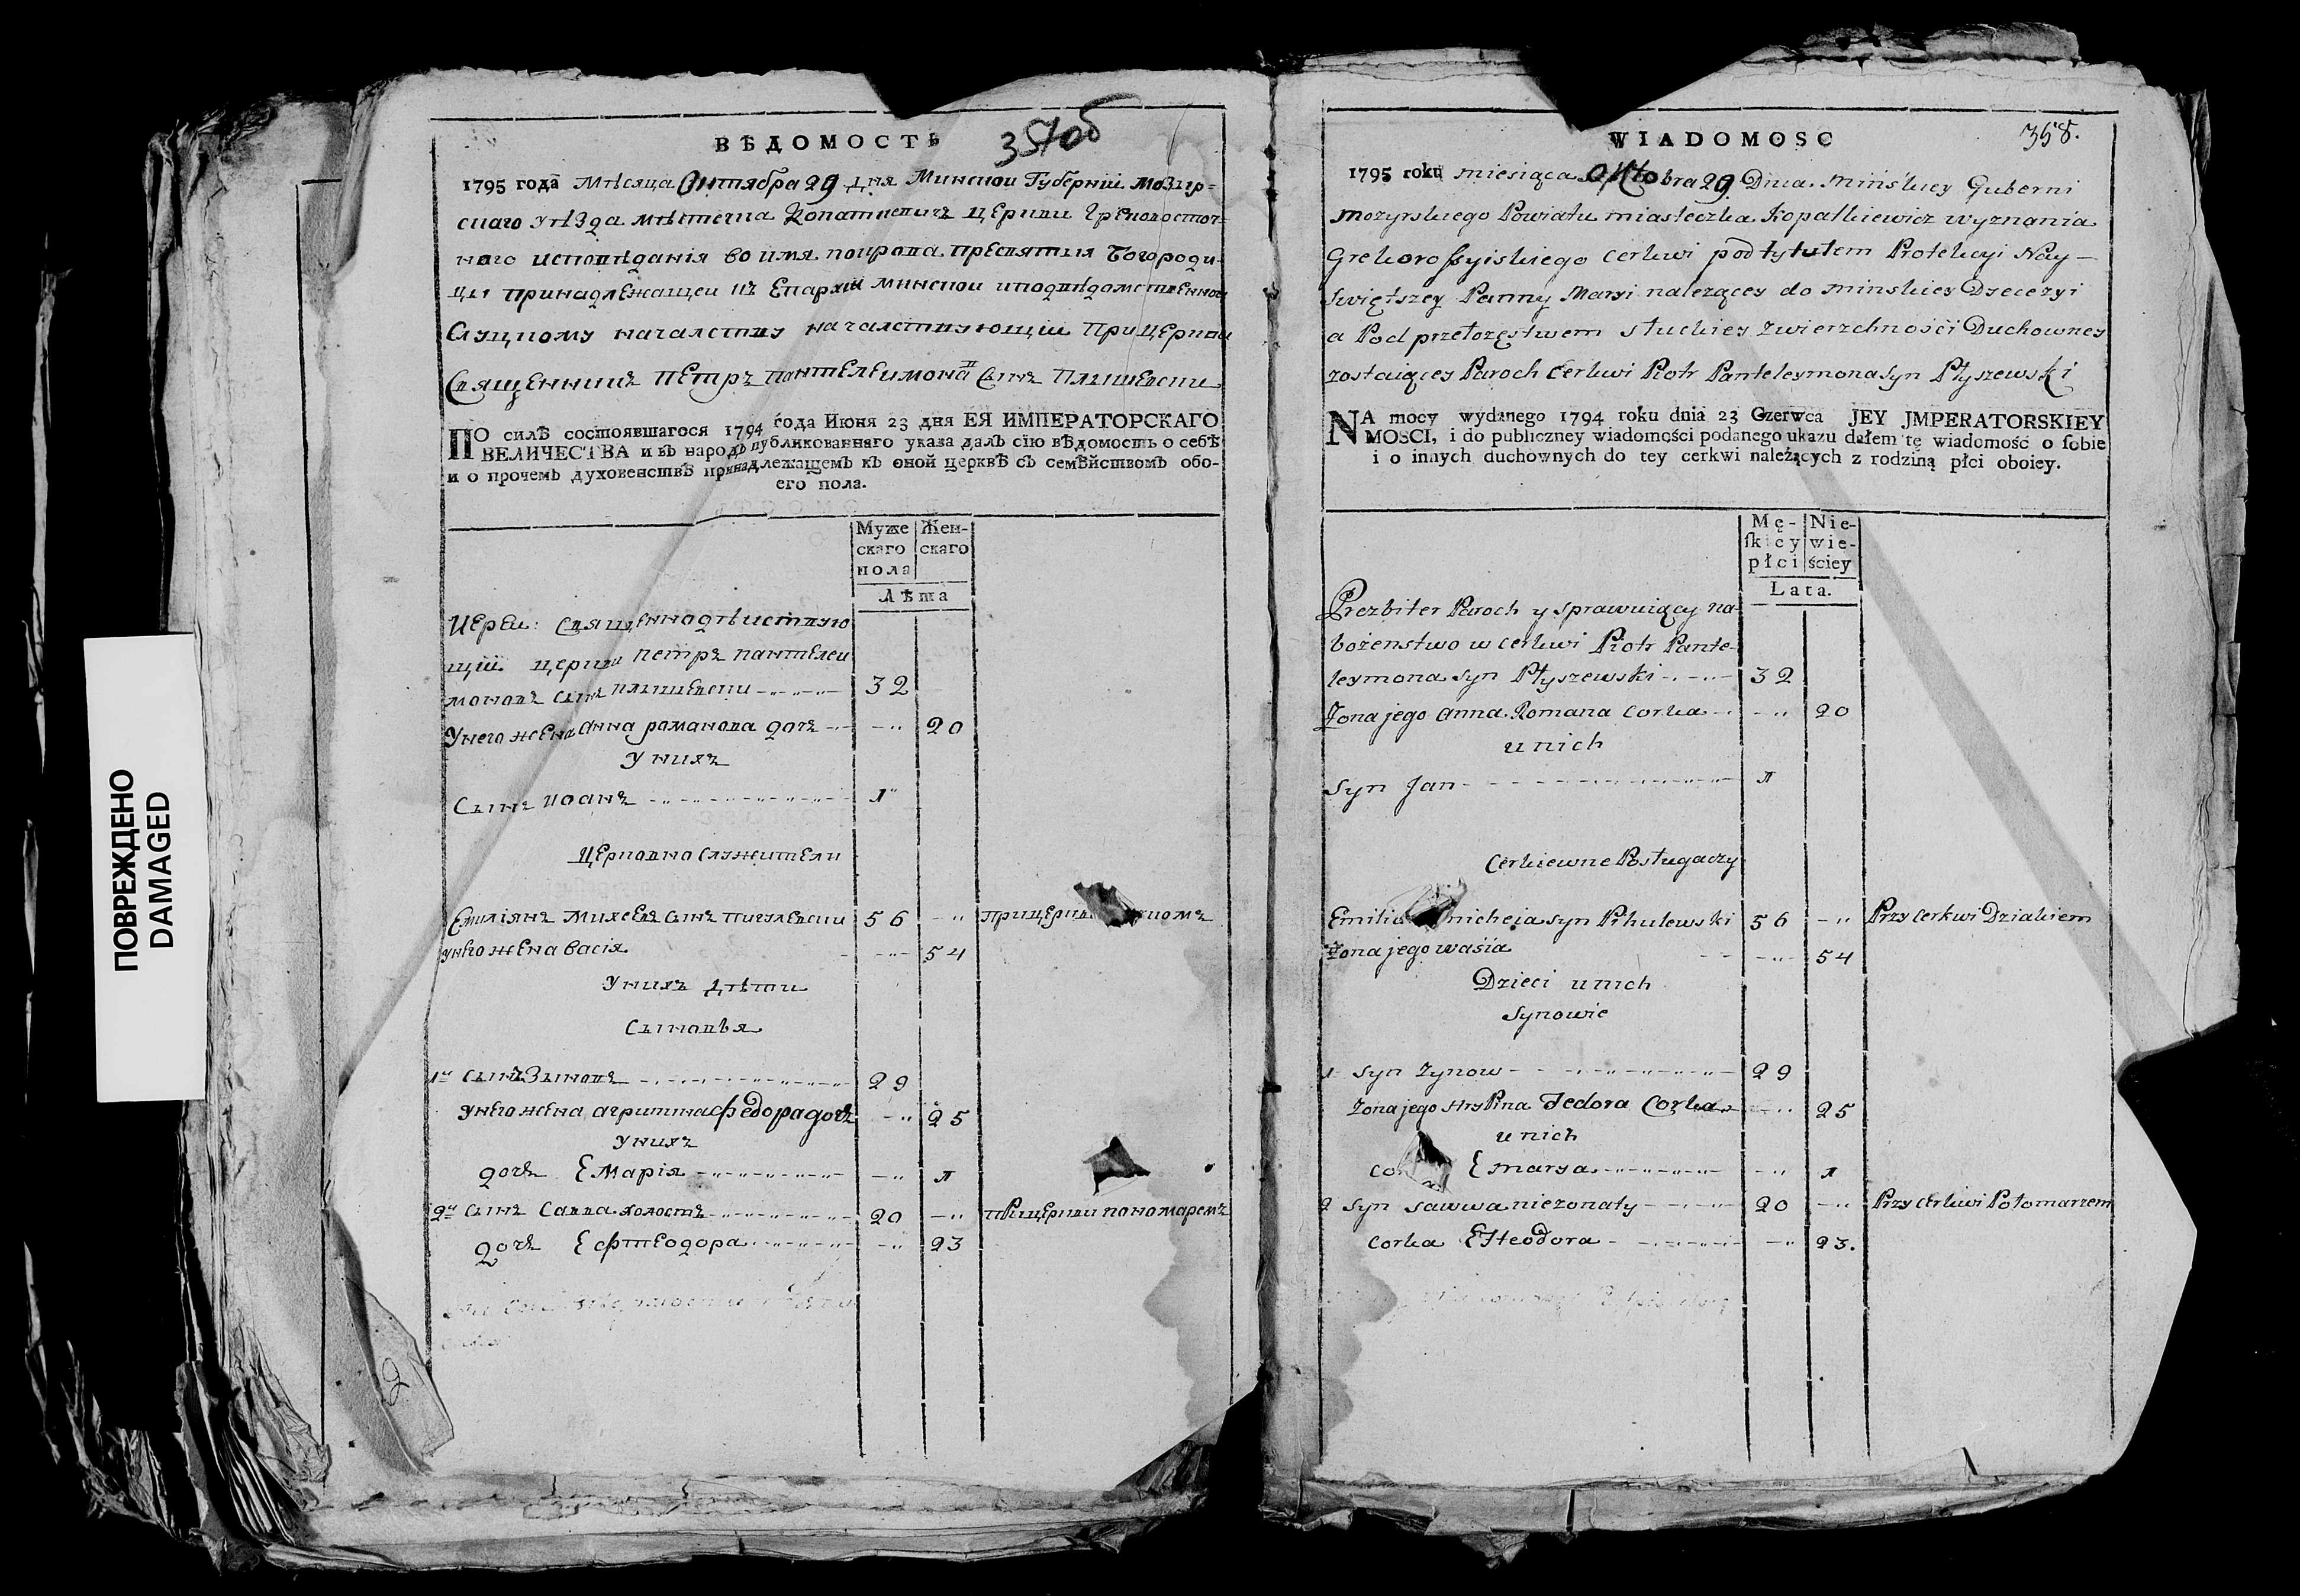 ПОВРЕЖДЕНО
DAMAGED
ВѢДОМОСТЬ
357об
1795 года Мѣсяца Октября 29 дня Минской Губерніи Мозыр-
скаго уѣзда мѣстечка Копаткевичъ церкви Грековосточ-
наго исповѣданія во имя покрова пресвятыя Богороди-
цы принадлежащей къ Епархіи минской и подвѣдомственной
Слуцкому началству началствующій При церкви
Священникъ Петръ Пантелеимона Сынъ Плышевски
ПО силѣ состоявшагося 1794 года Июня 23 дня ЕЯ ИМПЕРАТОРСКАГО
ВЕЛИЧЕСТВА и въ народъ публикованнаго указа далъ сію вѣдомость о себѣ
и о прочемъ духовенствѣ принадлежащемъ къ оной церквѣ съ семѣйствомъ обо-
его пола.
Муже Жен-
скаго скаго
пола
Лѣта
Иерей: Священнодѣиствую
щій церкви петръ пантелеи
моновъ сынъ плышевски 32
У него жена анна романова дочь 20
У нихъ
Сынъ иоанъ 1
Церковно служители
Емиліянъ михеевъ сынъ пигулевски 56 при церкви
У него жена васія 54
У нихъ дѣти
Сыновья
1й сынъ Зыновъ 29
У него жена агрипина федора дочь 25
У нихъ
дочь Е марія 1
2й сынъ Савва холостъ 20 при церкви пономаремъ
дочь Е ефтеодора 23
2
WIADOMOSC
358.
1795 roku miesiąca Oktobra 29 Dnia mińskiey Guberni
mozyrskiego Powiatu miasteczka Kopatkiewicz wyznania
Grekorossyiskiego cerkwi pod tytułem Protekcyi Nay-
świętszey Panny Maryi należącey do minskiey Dyecezyi
a Pod przełożęstwem słuckiey zwierzchności Duchowney
zostaiącey Paroch Cerkwi Piotr Panteleymona syn Płyszewski
NA mocy wydanego 1794 roku dnia 23 Czerwca JEY JMPERATORSKIEY
MOSCI, i do publiczney wiadomości podanego ukazu dałem tę wiadomość o sobie
i o innych duchownych do tey cerkwi należących z rodziną płci oboiey.
Mę- Nie-
skiey wie-
płci ściey
Lata.
Prezbiter Paroch y sprawuiący na-
bożenstwo w cerkwi Piotr Pante-
leymona syn Płyszewski 32
Żona jego anna Romana corka 20
u nich
Syn Jan 1
Cerkiewne Posługaczy
Emilia micheja syn Pihulewski 56 Przy cerkwi Dziakiem
Żona jego wasia 54
Dzieci u nich
Synowie
1 Syn Zynow 29
Żona jego Hrypina Fedora Corka 25
u nich
E marya 1
2 Syn sawwa nieżonaty 20 Przy cerkwi Połomarzem
corka Efteodora 23.